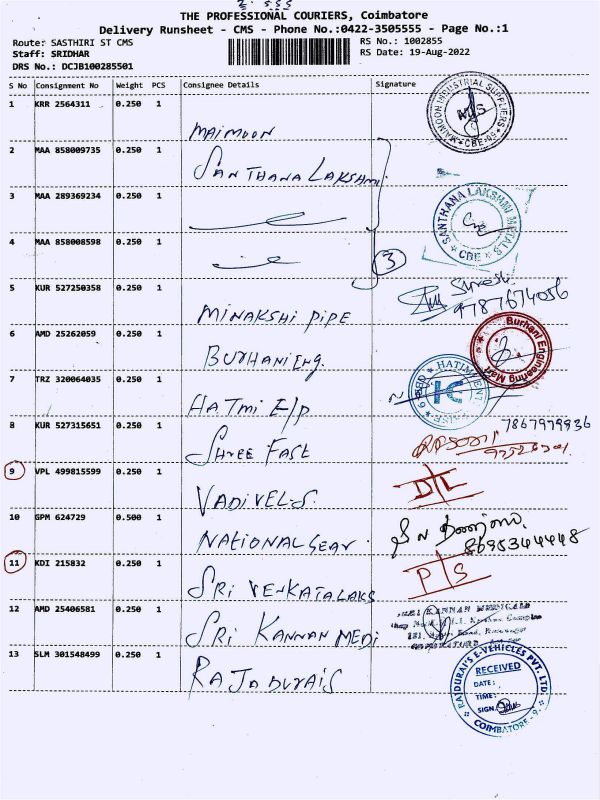 THE PROFESSIONAL COURIERS, Coimbatore
Delivery Runsheet - CMS - Phone No.:0422-3505555 - Page No.:1
Route: SASTHIRI ST CMS
RS No.: 1002855
Staff: SRIDHAR
RS Date: 19-Aug-2022
DRS No.: DCJB100285501
S No Consignment No Weight PCS Consignee Details Signature
1 KRR 2564311 0.250 1 MAIMOON
MAIMOON INDUSTRIAL SUPPLIERS
2 MAA 858009735 0.250 1 SANTHANA LAKSHMI
3 MAA 289369234 0.250 1
SANTHANA LAKSHMI METALS
CBE
4 MAA 858008598 0.250 1
3
5 KUR 527250358 0.250 1 MINAKSHI PIPE
Suresh
9787674056
6 AMD 25262059 0.250 1 BURHANI Eng.
Burhani Engineering Mart
7 TRZ 320064035 0.250 1 HATMI E/P
8 KUR 527315651 0.250 1 SHREE FAST
7867979936
9 VPL 499815599 0.250 1 VADIVEL.S.
D/L
10 GPM 624729 0.500 1 NATIONAL GEAR
8695344448
11 KDI 215832 0.250 1 SRI VENKATALAKS
P/S
12 AMD 25406581 0.250 1 SRI KANNAN MEDI
KANNAN MEDICALS
13 SLM 301548499 0.250 1 RAJADURAIS
RAJDURAI'S E-VEHICLES PVT. LTD.
RECEIVED
DATE:
TIME:
SIGN.
COIMBATORE - 9.